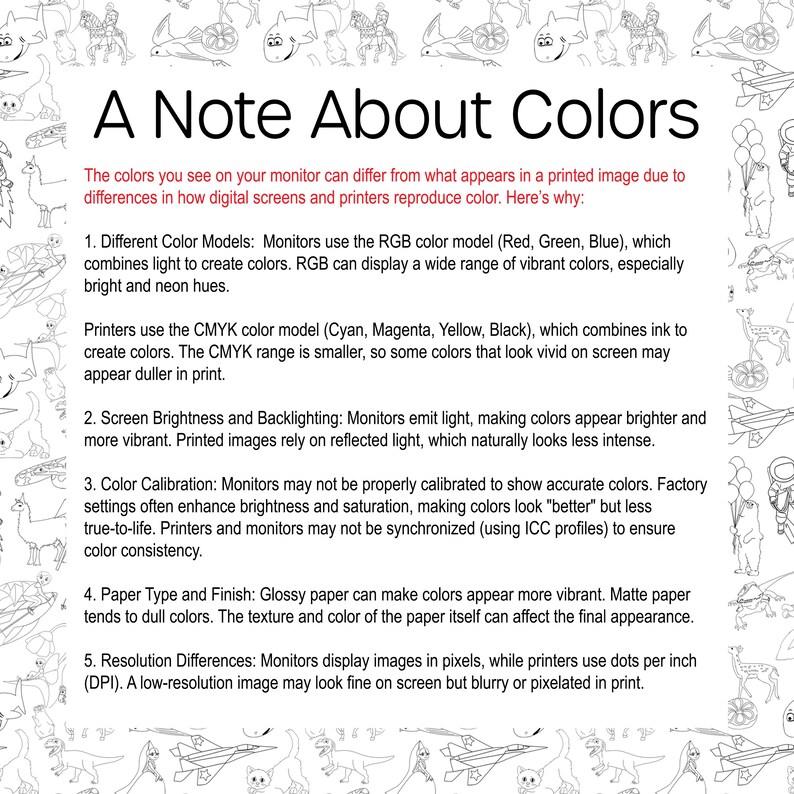 A Note About Colors
The colors you see on your monitor can differ from what appears in a printed image due to
differences in how digital screens and printers reproduce color. Here’s why:
1. Different Color Models:  Monitors use the RGB color model (Red, Green, Blue), which
combines light to create colors. RGB can display a wide range of vibrant colors, especially
bright and neon hues.
Printers use the CMYK color model (Cyan, Magenta, Yellow, Black), which combines ink to
create colors. The CMYK range is smaller, so some colors that look vivid on screen may
appear duller in print.
2. Screen Brightness and Backlighting: Monitors emit light, making colors appear brighter and
more vibrant. Printed images rely on reflected light, which naturally looks less intense.
3. Color Calibration: Monitors may not be properly calibrated to show accurate colors. Factory
settings often enhance brightness and saturation, making colors look "better" but less
true-to-life. Printers and monitors may not be synchronized (using ICC profiles) to ensure
color consistency.
4. Paper Type and Finish: Glossy paper can make colors appear more vibrant. Matte paper
tends to dull colors. The texture and color of the paper itself can affect the final appearance.
5. Resolution Differences: Monitors display images in pixels, while printers use dots per inch
(DPI). A low-resolution image may look fine on screen but blurry or pixelated in print.